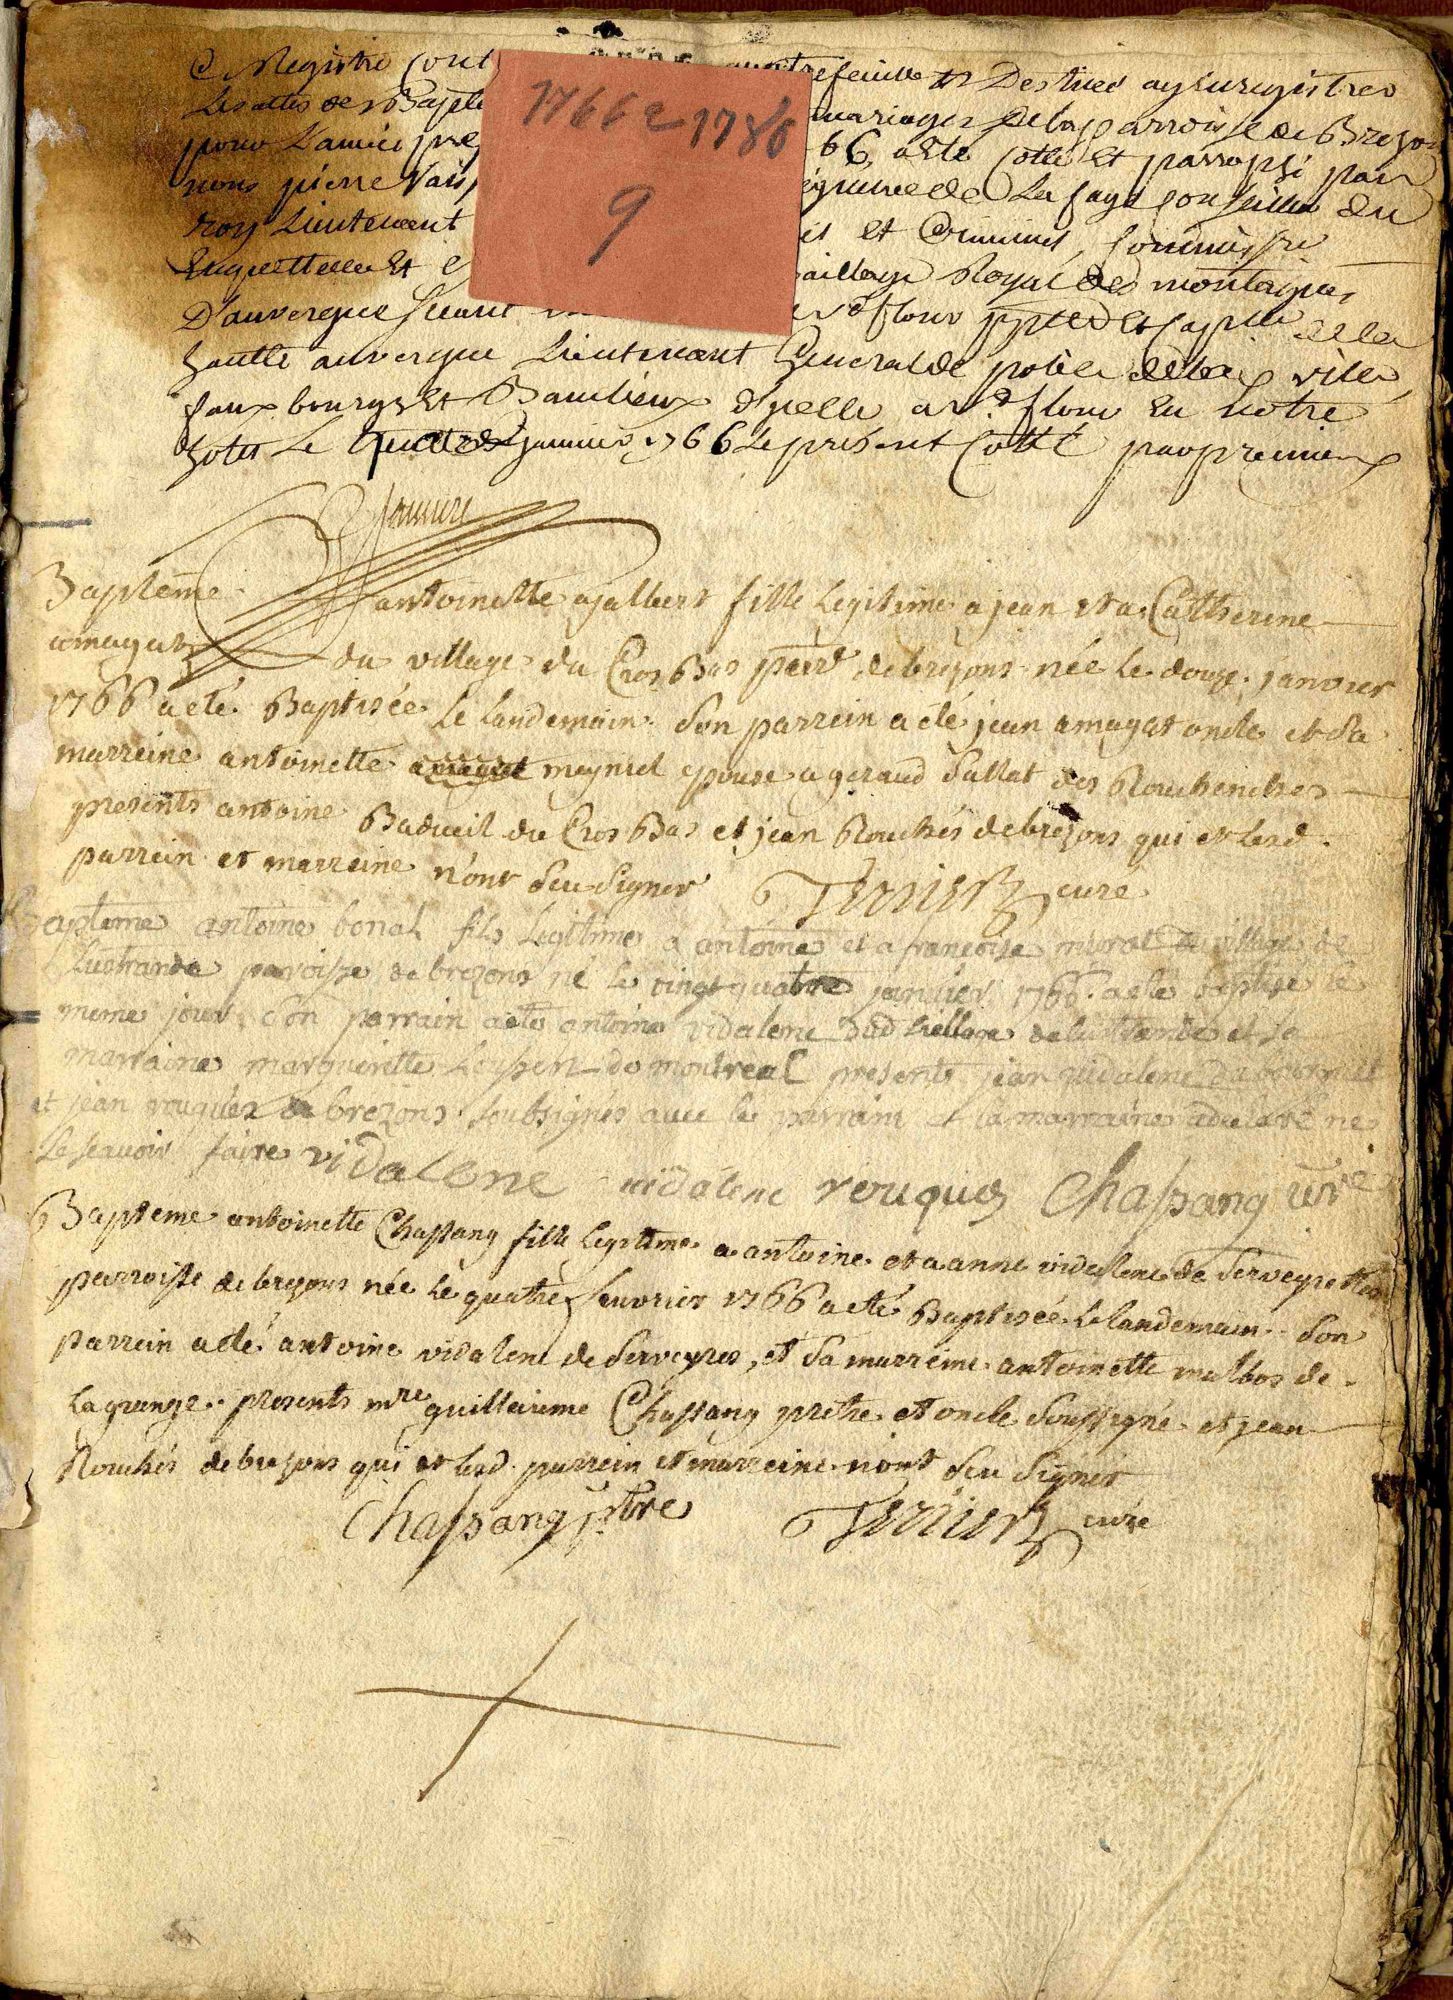 Ce Registre cont quatrefeuille Destines a enregistrer
Les actes de Bapte mariages de la parroisse de Brezons
pour L'année pre 66 a Eté Cotté Et parraphé par
nous pierre Vais de La fage Conseiller du
roy Lieutenant il et Criminel, Commissre
Enquetteur Et e Bailliage Royal des montagnes
D'auvergne Seant St flour de la
haulte auvergne Lieutenant General de police de la ville
faux bourgs Et Banlieux d'ycelle a St flour En notre
hotel Le quatre janvier 1766 Le présent Cotté par premier
1766 a 1786
9
Bapteme antoinette ajalbert fille Legitime a jean et a Catherine
amagat du village du Cros Bas parr de brezons née le douze janvier
1766 a eté Baptisée Le landemain. Son parrein a eté jean amagat oncle et Sa
marreine antoinette amagat meyniel epouse a geraud Sallat des Roucheiches
presents antoine Badueil du Cros Bas et jean Rouchés de brezons qui et lesd.
parrein et marreine n'ont Seu Signer Terrier curé
Bapteme antoine bonal fils Legitime a antoine et a françoise murat du village de
Lustrande paroisse de brezons né le vingt quatre janvier 1766 a eté baptisé le
meme jour, Son parrain a eté antoine vidalenc dud village de lustrande et sa
marraine margueritte de montreal presents jean vidalenc du bournet
et jean rouqués de brezons soubsignés avec le parrain et la marraine a declaré ne
Le scavoir faire vidalenc vidalenc rouques Chassang vre
Bapteme antoinette Chassang fille Legitime a antoine et a anne vidalenc de Serveyrettes
parroisse de brezons née Le quatre feuvrier 1766 a eté Baptisée Le landemain. Son
parrein a eté antoine vidalenc de Serveyres, et Sa marreine antoinette malbos de
La grange. presents mre guilleaume Chassang pretre et oncle Soussigné et jean
Rouchés de brezons qui et lesd. parrein et marreine n'ont Seu Signer
Chassang ptre Terrier curé